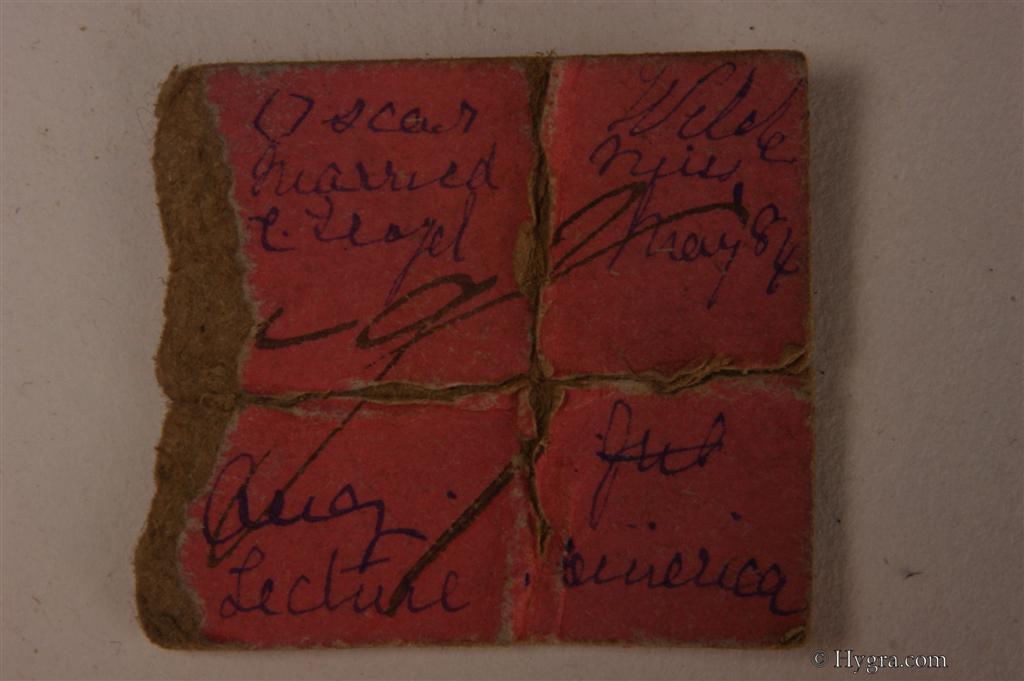 Oscar Wilde
married Miss
C. Lloyd May 84
Aug.
Lecture America
© Hygra.com